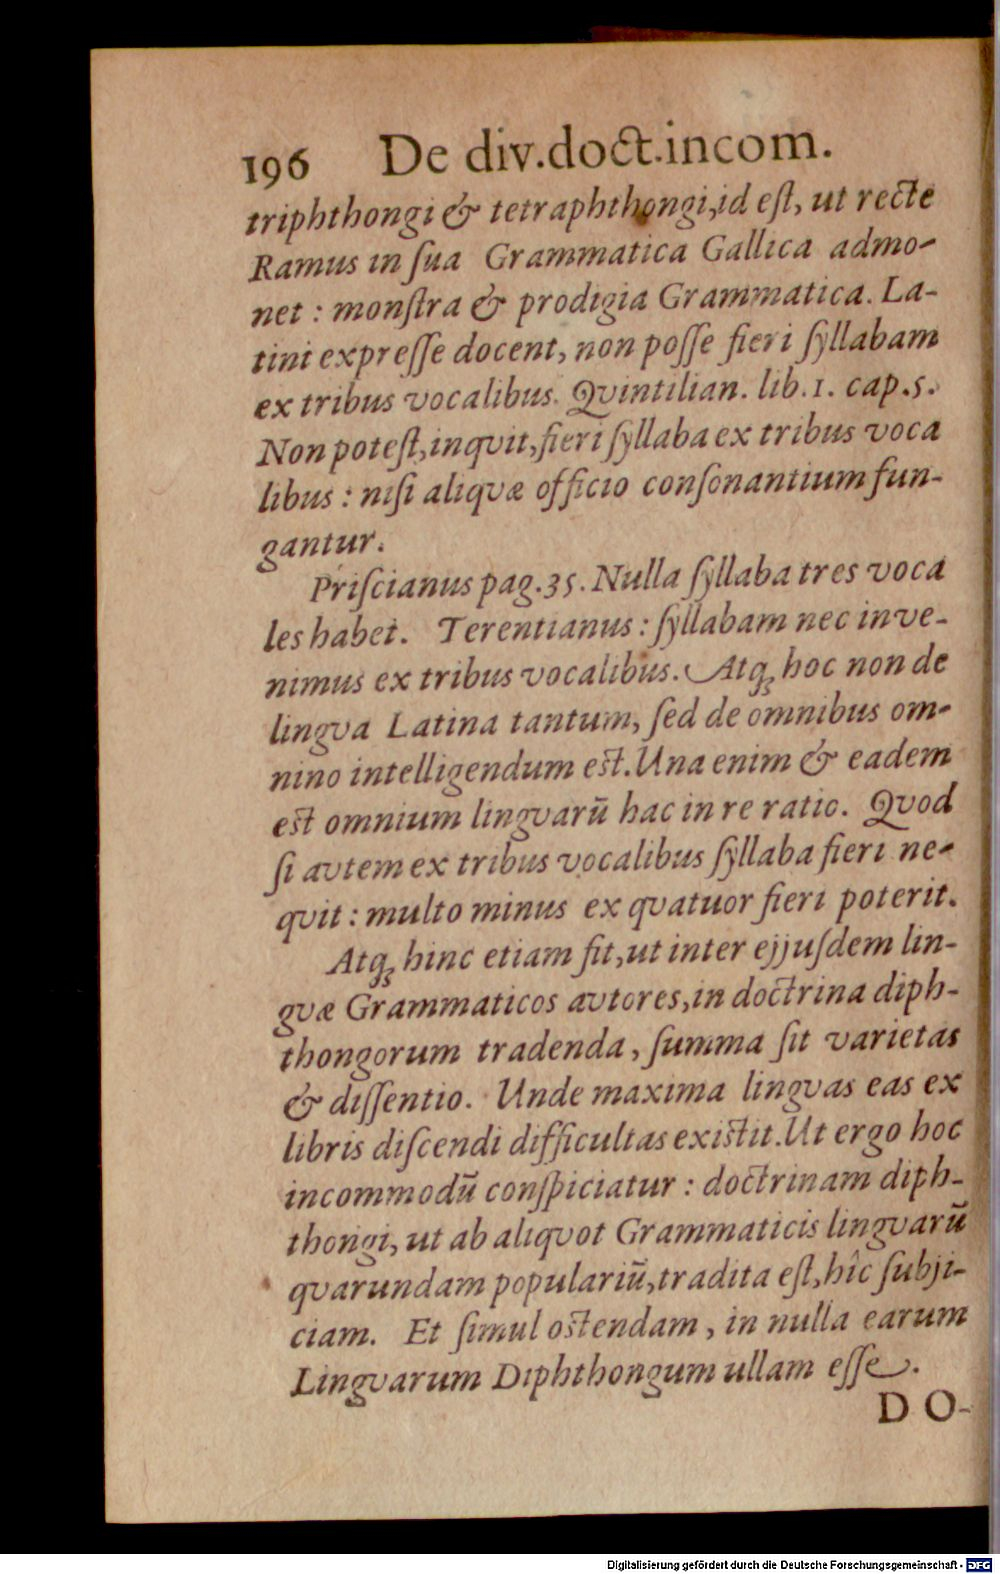 196 De div.doct.incom.
triphthongi & tetraphthongi,id eſt, ut recte
Ramus in ſua Grammatica Gallica admo-
net : monſtra & prodigia Grammatica. La-
tini expreſſe docent, non poſſe fieri ſyllabam
ex tribus vocalibus. Qvintilian. lib.1. cap.5.
Non poteſt,inqvit,fieri ſyllaba ex tribus voca
libus : niſi aliqvæ officio conſonantium fun-
gantur.
Priſcianus pag.35. Nulla ſyllaba tres voca
les habet. Terentianus : ſyllabam nec inve-
nimus ex tribus vocalibus. Atqꝫ hoc non de
lingva Latina tantum, ſed de omnibus om-
nino intelligendum est. Una enim & eadem
est omnium lingvarū hac in re ratio. Qvod
ſi avtem ex tribus vocalibus ſyllaba fieri ne-
qvit : multo minus ex qvatuor fieri poterit.
Atqꝫ hinc etiam fit,ut inter ejjuſdem lin-
gvæ Grammaticos avtores,in doctrina diph-
thongorum tradenda, ſumma ſit varietas
& diſſentio. Unde maxima lingvas eas ex
libris diſcendi difficultas existit.Ut ergo hoc
incommodū conſpiciatur : doctrinam diph-
thongi, ut ab aliqvot Grammaticis lingvarū
qvarundam populariū,tradita eſt,hîc ſubji-
ciam. Et ſimul ostendam, in nulla earum
Lingvarum Diphthongum ullam eſſe.
DO-
Digitalisierung gefördert durch die Deutsche Forschungsgemeinschaft - DFG